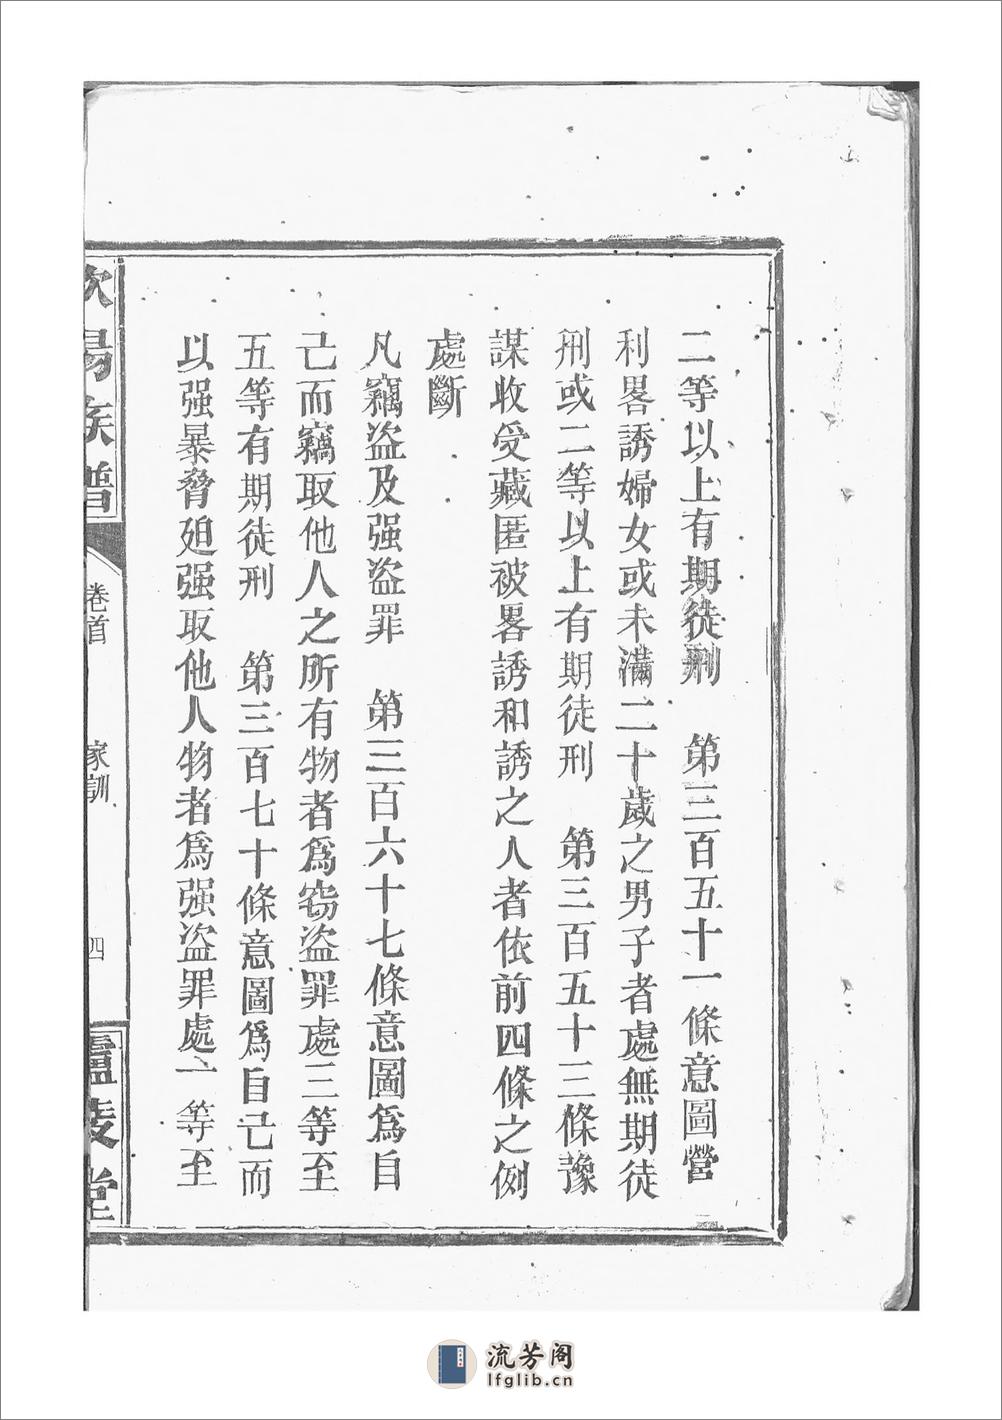 二等以上有期徒刑　第三百五十一條意圖營
利畧誘婦女或未滿二十歲之男子者處無期徒
刑或二等以上有期徒刑　第三百五十三條豫
謀收受藏匿被畧誘和誘之人者依前四條之例
處斷
凡竊盜及强盜罪　第三百六十七條意圖爲自
己而竊取他人之所有物者爲窃盜罪處三等至
五等有期徒刑　第三百七十條意圖爲自己而
以强暴脅廹强取他人物者爲强盜罪處一等至
族譜
卷首
家訓
四
堂
流芳阁
lfglib.cn